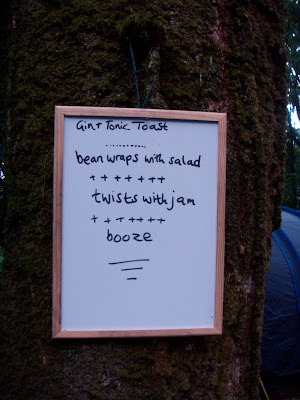 Gin + Tonic Toast
............
bean wraps with salad
+ + + + + + +
twists with jam
+ + + + + + +
booze